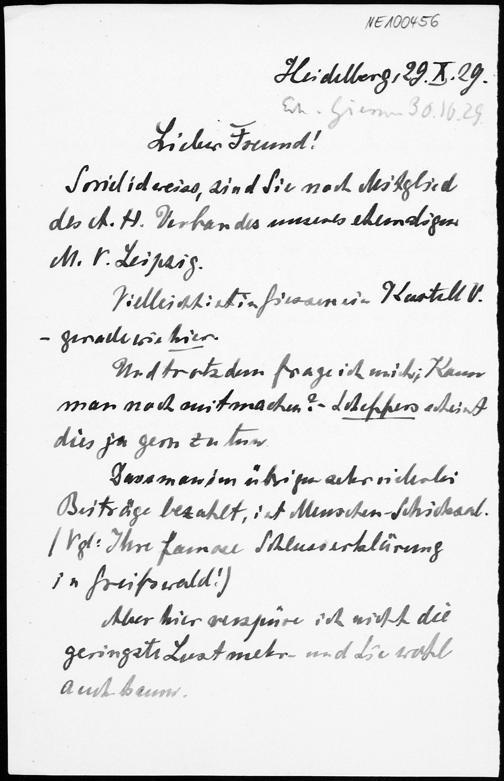 NE100456
Heidelberg, 29. X. 29.
Erh. Giessen 30.10.29.
Lieber Freund!
Soviel ich weiss, sind Sie noch Mitglied
des A. H. Verbandes unseres ehemaligen
M. V. Leipzig.
Vielleicht ist in Giessen ein Kartell V.
– gerade wie hier.
Und trotzdem frage ich mich; Kann
man noch mitmachen? – Scheppers scheint
dies ja gern zu tun.
Dass man im übrigen sehr vielerlei
Beiträge bezahlt, ist Menschen-Schicksal.
(Vgl: Ihre famose Schlusserklärung
in Greifswald!)
Aber hier verspüre ich nicht die
geringste Lust mehr – und Sie wohl
auch kaum.